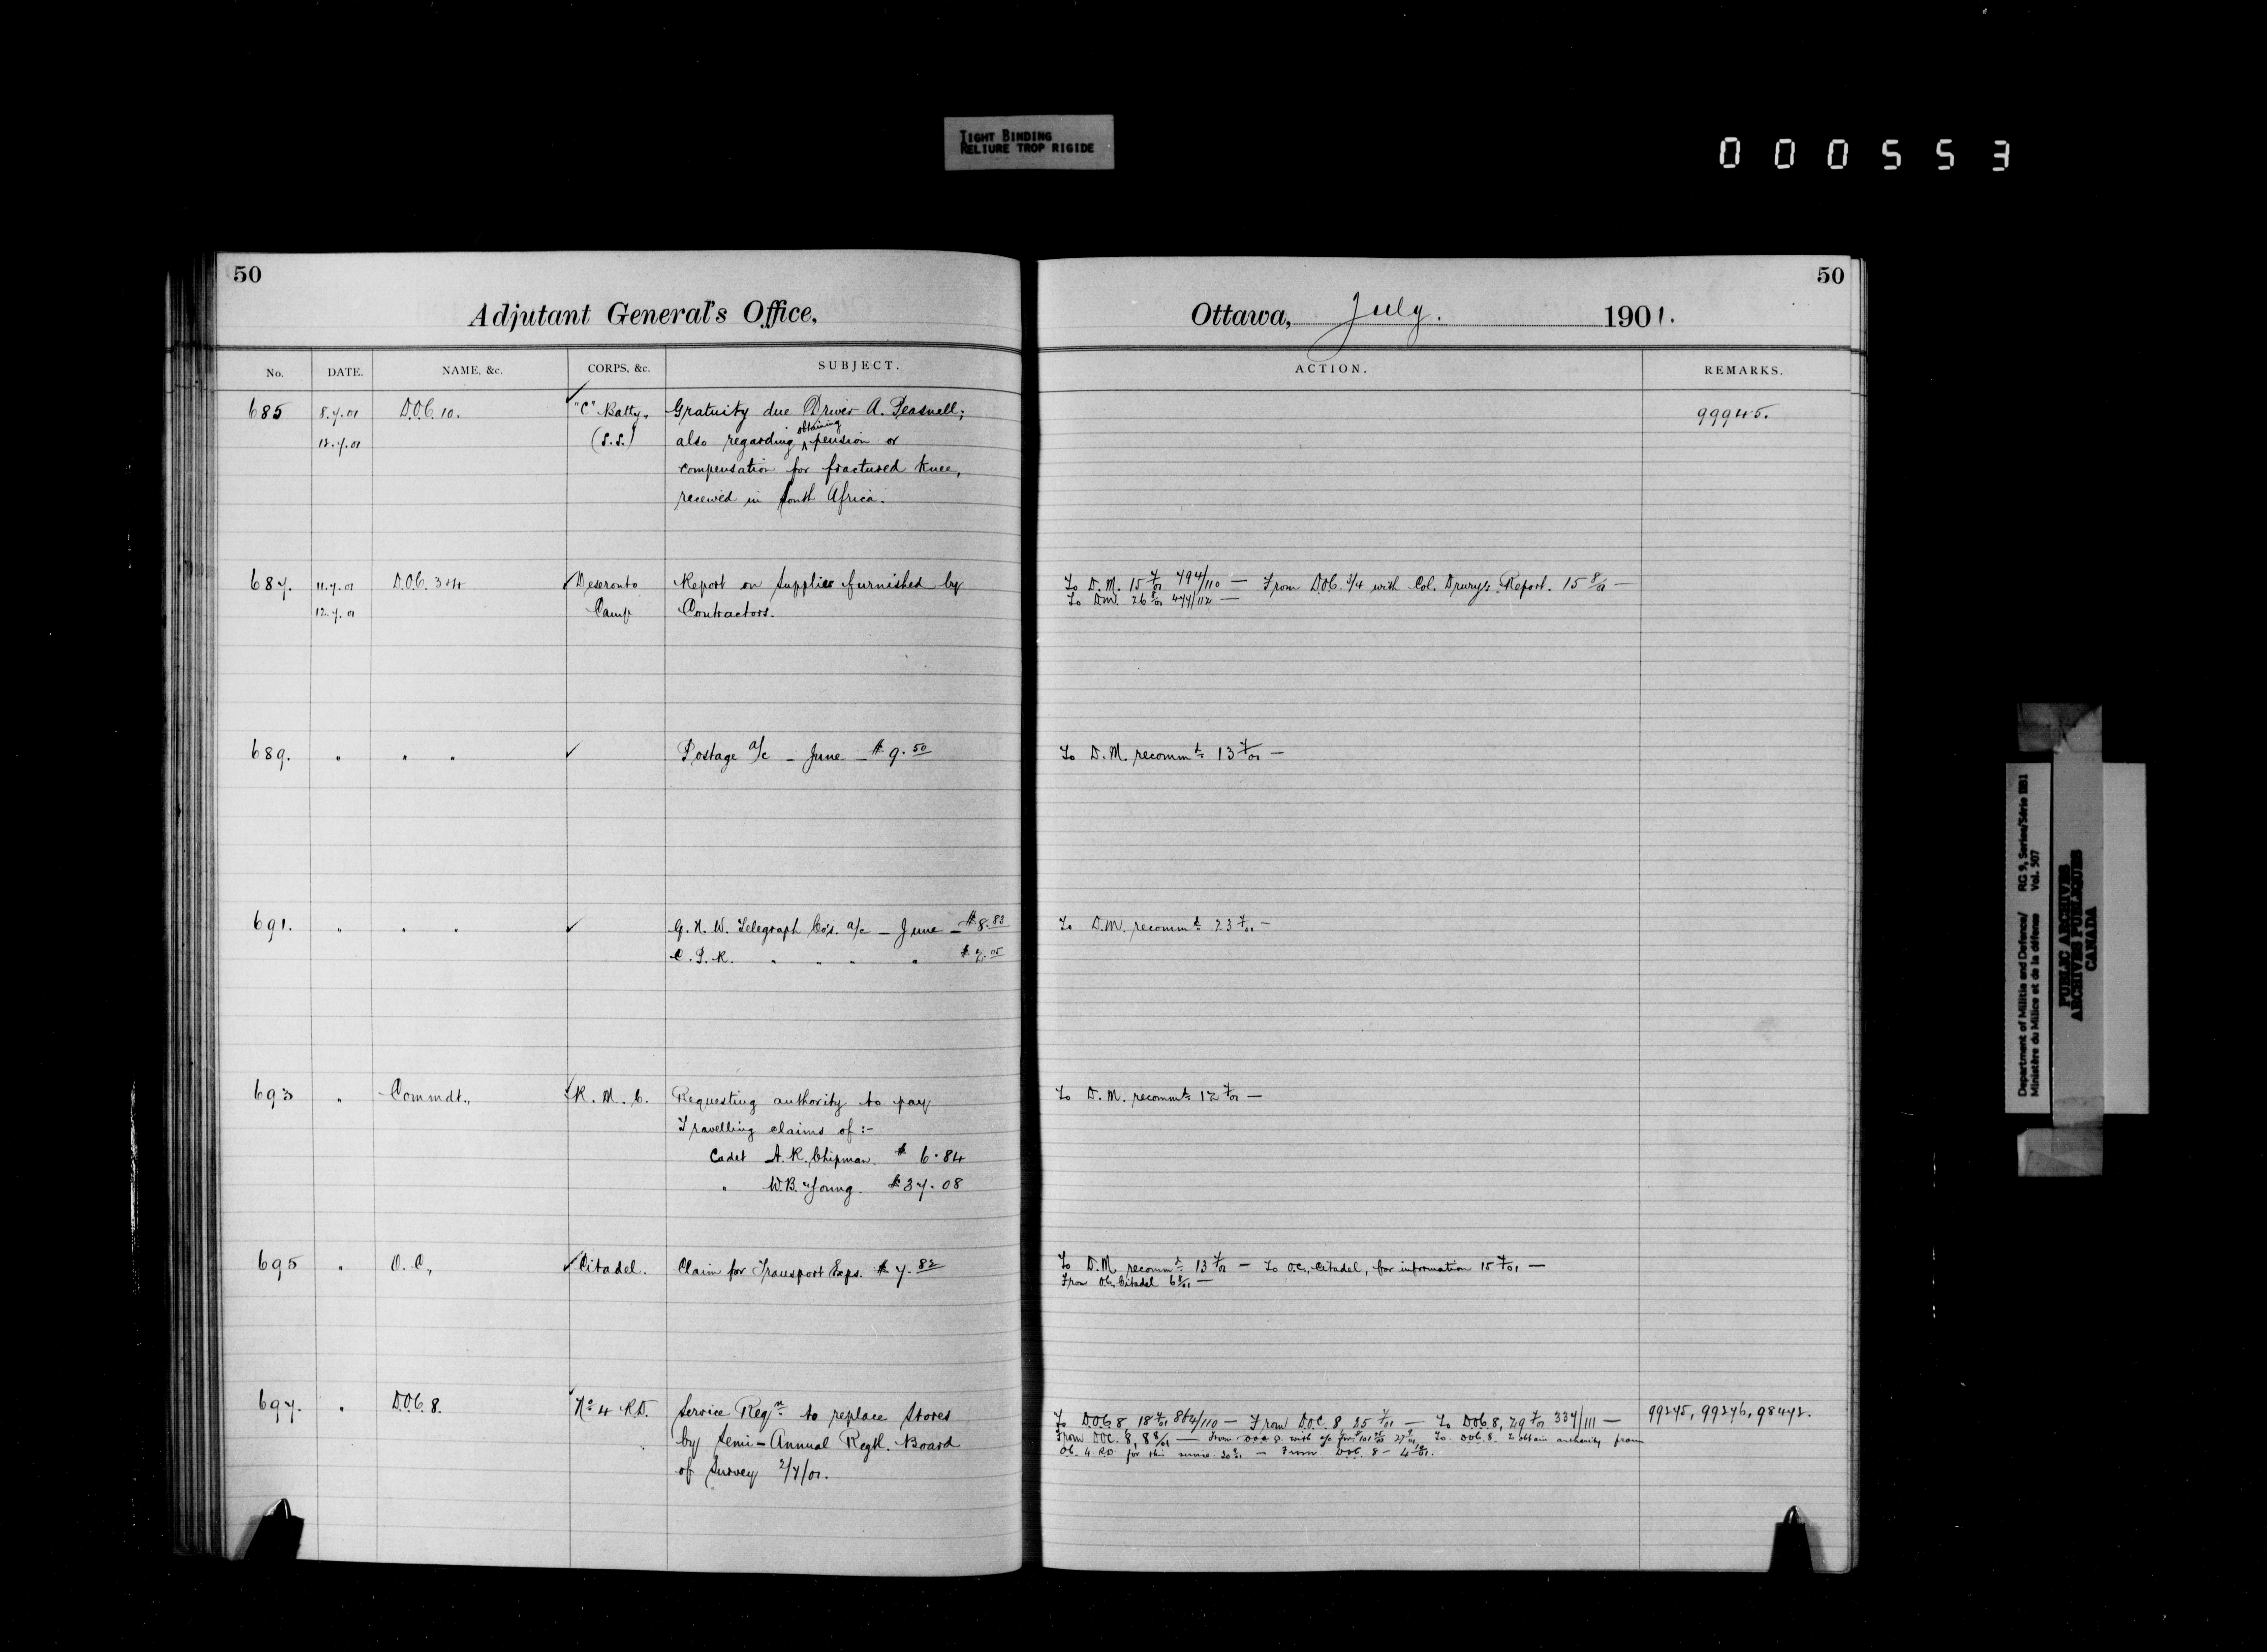 TIGHT BINDING
RELIURE TROP RIGIDE
000553
50
Adjutant General's Office,
No. DATE. NAME, &c. CORPS, &c. SUBJECT.
685 8.7.01 D.O.C. 10. "C" Batty. Gratuity due Driver A. Peasnell;
12.7.01 (S.S.) also regarding obtaining pension or
compensation for fractured knee,
received in South Africa.
687. 11.7.01 D.O.C. 3+4 Deseronto Report on Supplies furnished by
12.7.01 Camp Contractors.
689. " " " ✓ Postage a/c – June – $9.50
691. " " " ✓ G. N. W. Telegraph Co's. a/c – June – $8.83
C. P. R. " " " " $2.05
693 " Commdt., R. M. C. Requesting authority to pay
Travelling claims of :-
Cadet A. R. Chipman. $ 6.84
" W. B. Young. $37.08
695 " O. C., ✓ Citadel. Claim for Transport Exps. $7.82
697. " D.O.C. 8. No 4 R.D. Service Reqn. to replace Stores
by Semi-Annual Regtl. Board
of Survey 2/7/01.
50
Ottawa, July. 1901.
ACTION. REMARKS.
99945.
To D.M. 15 7/01 794/110 — From D.O.C. 3/4 with Col. Drury's Report. 15 8/01 —
To D.M. 26 8/01 477/112 —
To D.M. recommd. 13 7/01 —
To D.M. recommd. 23 7/01 —
To D.M. recommd. 12 7/01 —
To D.M. recommd. 13 7/01 — To O.C., Citadel, for information 15 7/01 —
From O.C. Citadel 6 8/01 —
To D.O.C. 8 18 7/01 864/110 — From D.O.C. 8 25 7/01 — To D.O.C. 8, 29 7/01 337/111 — 99275, 99276, 98472.
From D.O.C. 8, 8 8/01 — From D.O.C. 8. with To D.O.C. 8. to obtain authority from
O.C. 4 R.D. for this — From D.O.C. 8 – 4 10/01.
Department of Militia and Defence/ RG 9, Series/Série IIB1
Ministère du Milice et de la défense Vol. 507
PUBLIC ARCHIVES
ARCHIVES PUBLIQUES
CANADA